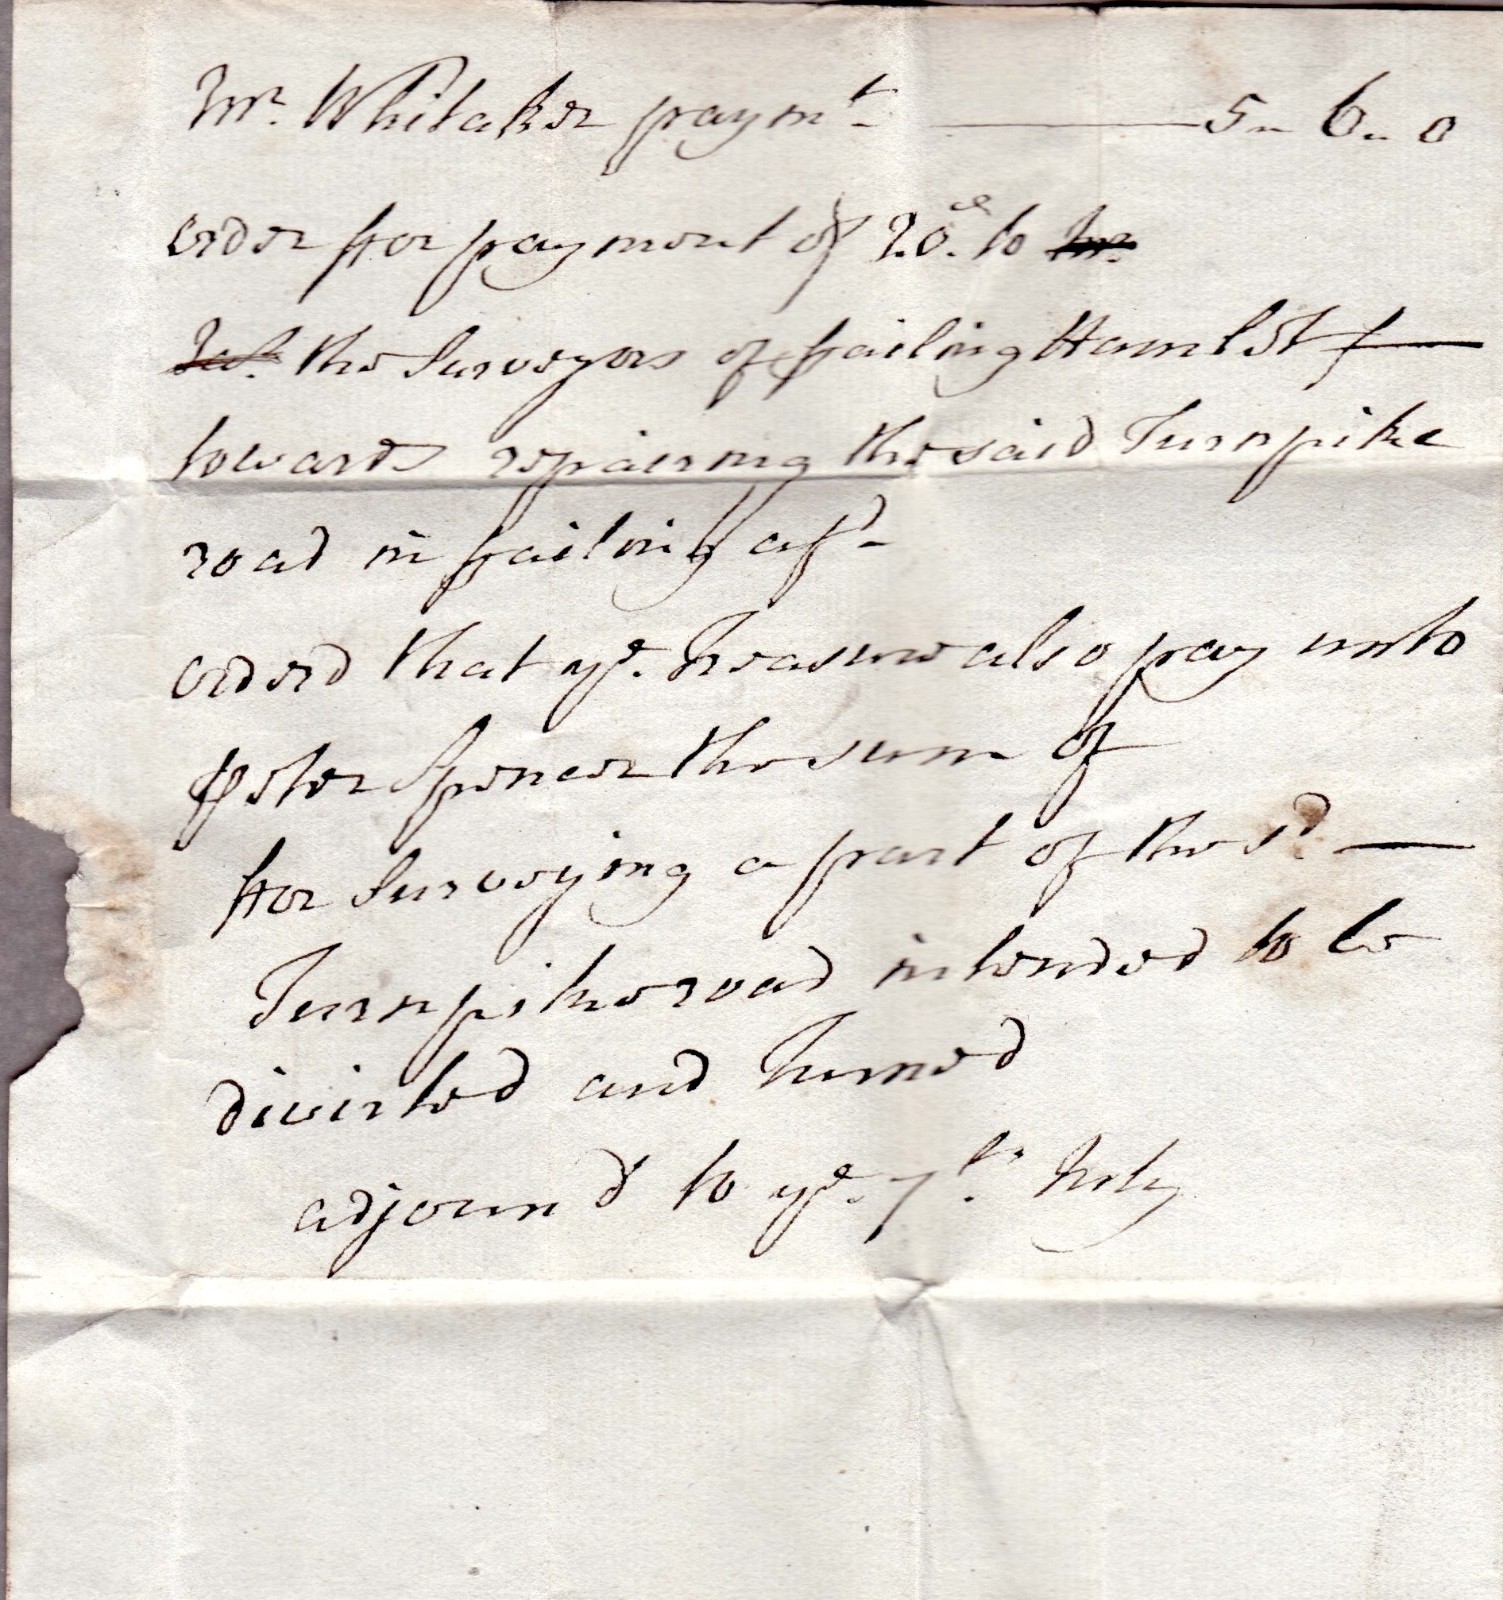 Mr. Whitaker paymt. — 5 " 6 " 0
order for payment of 20£. to Mr.
the Surveyors of failing Hamlet
towards repairing the said Turnpike
road in failing afd.
orderd that ye. Treasurer also pay unto
Peter Spencer the sum of
for Surveying a part of the sd. —
Turnpike road intended to be
diverted and Turned
adjournd to ye. 7th. July